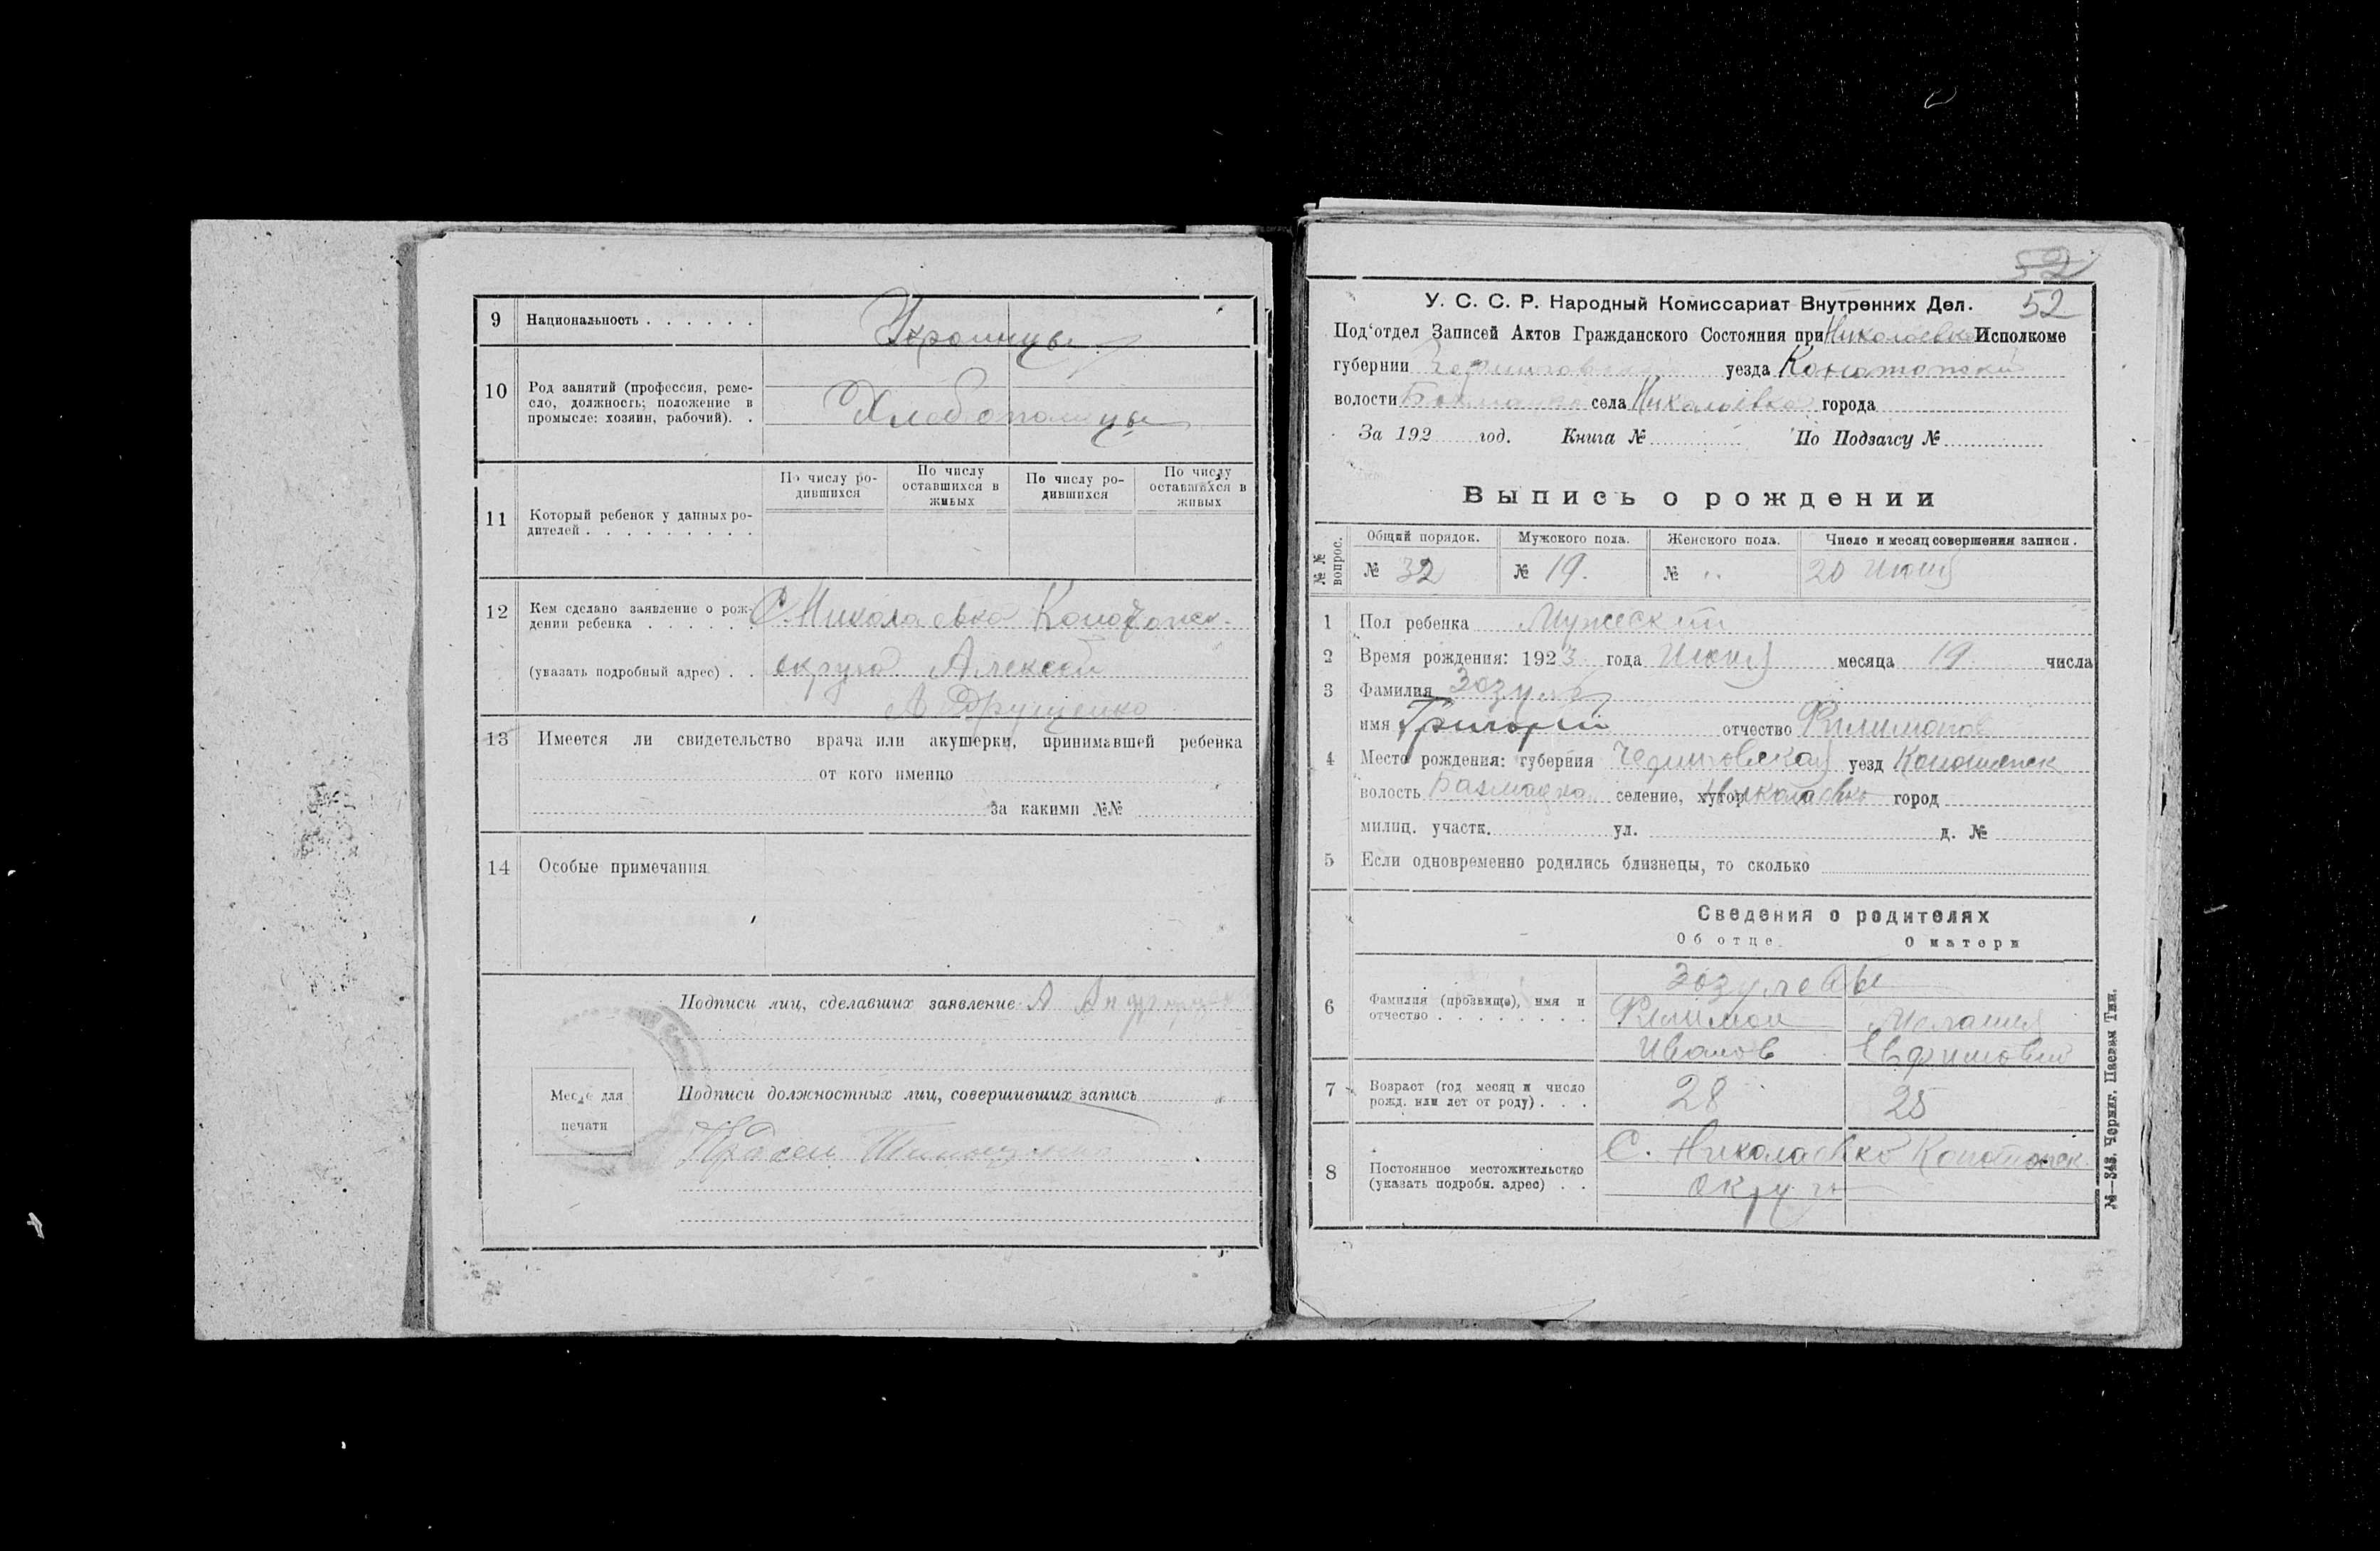 9 Национальность . . . . . .
Украинцы
10 Род занятий (профессия, реме-
сло, должность; положение в
промысле: хозяин, рабочий). .
Хлебопашцы
По числу ро-
дившихся
По числу
оставшихся в
живых
По числу ро-
дившихся
По числу
оставшихся в
живых
11 Который ребенок у данных ро-
дителей . . . . . . . . .
12 Кем сделано заявление о рож-
дении ребенка . . . . . .
С. Николаевка Конотопск.
(указать подробный адрес) . . округа Алексей
Андрущенко
13 Имеется ли свидетельство врача или акушерки, принимавшей ребенка
от кого именно
за какими №№
14 Особые примечания
Подписи лиц, сделавших заявление А Андрущ
Место для
печати
Подписи должностных лиц, совершивших запись
52
52
У. С. С. Р. Народный Комиссариат Внутренних Дел.
Под‘отдел Записей Актов Гражданского Состояния при Николаевко Исполкоме
губернии Черниговской уезда Конотопский
волости Бахмацко села Николаевка города
За 192 год. Книга № По Подзагсу №
Выпись о рождении
№№ вопрос.
Общий порядок. Мужского пола. Женского пола. Число и месяц совершения записи.
№ 32 № 19. № „ 20 Июня
1 Пол ребенка Мужеский
2 Время рождения: 1923 года Июня месяца 19 числа
3 Фамилия Зозуля
имя Григорий отчество Филимонов
4 Место рождения: губерния Черниговская уезд Конотопск
волость Бахмацка селение, хутор Николаевка город
милиц. участк. ул. д. №
5 Если одновременно родились близнецы, то сколько
Сведения о родителях
Об отце. О матери
Зозулевы
6 Фамилия (прозвище), имя и
отчество . . . . . . . .
Филимон Мелания
Иванов Евфимовна
7 Возраст (год месяц и число
рожд. или лет от роду) . . .
28 25
8 Постоянное местожительство
(указать подробн. адрес) . .
С. Николаевка Конотопск.
округа
№—343. Черниг. Паевым Тип.